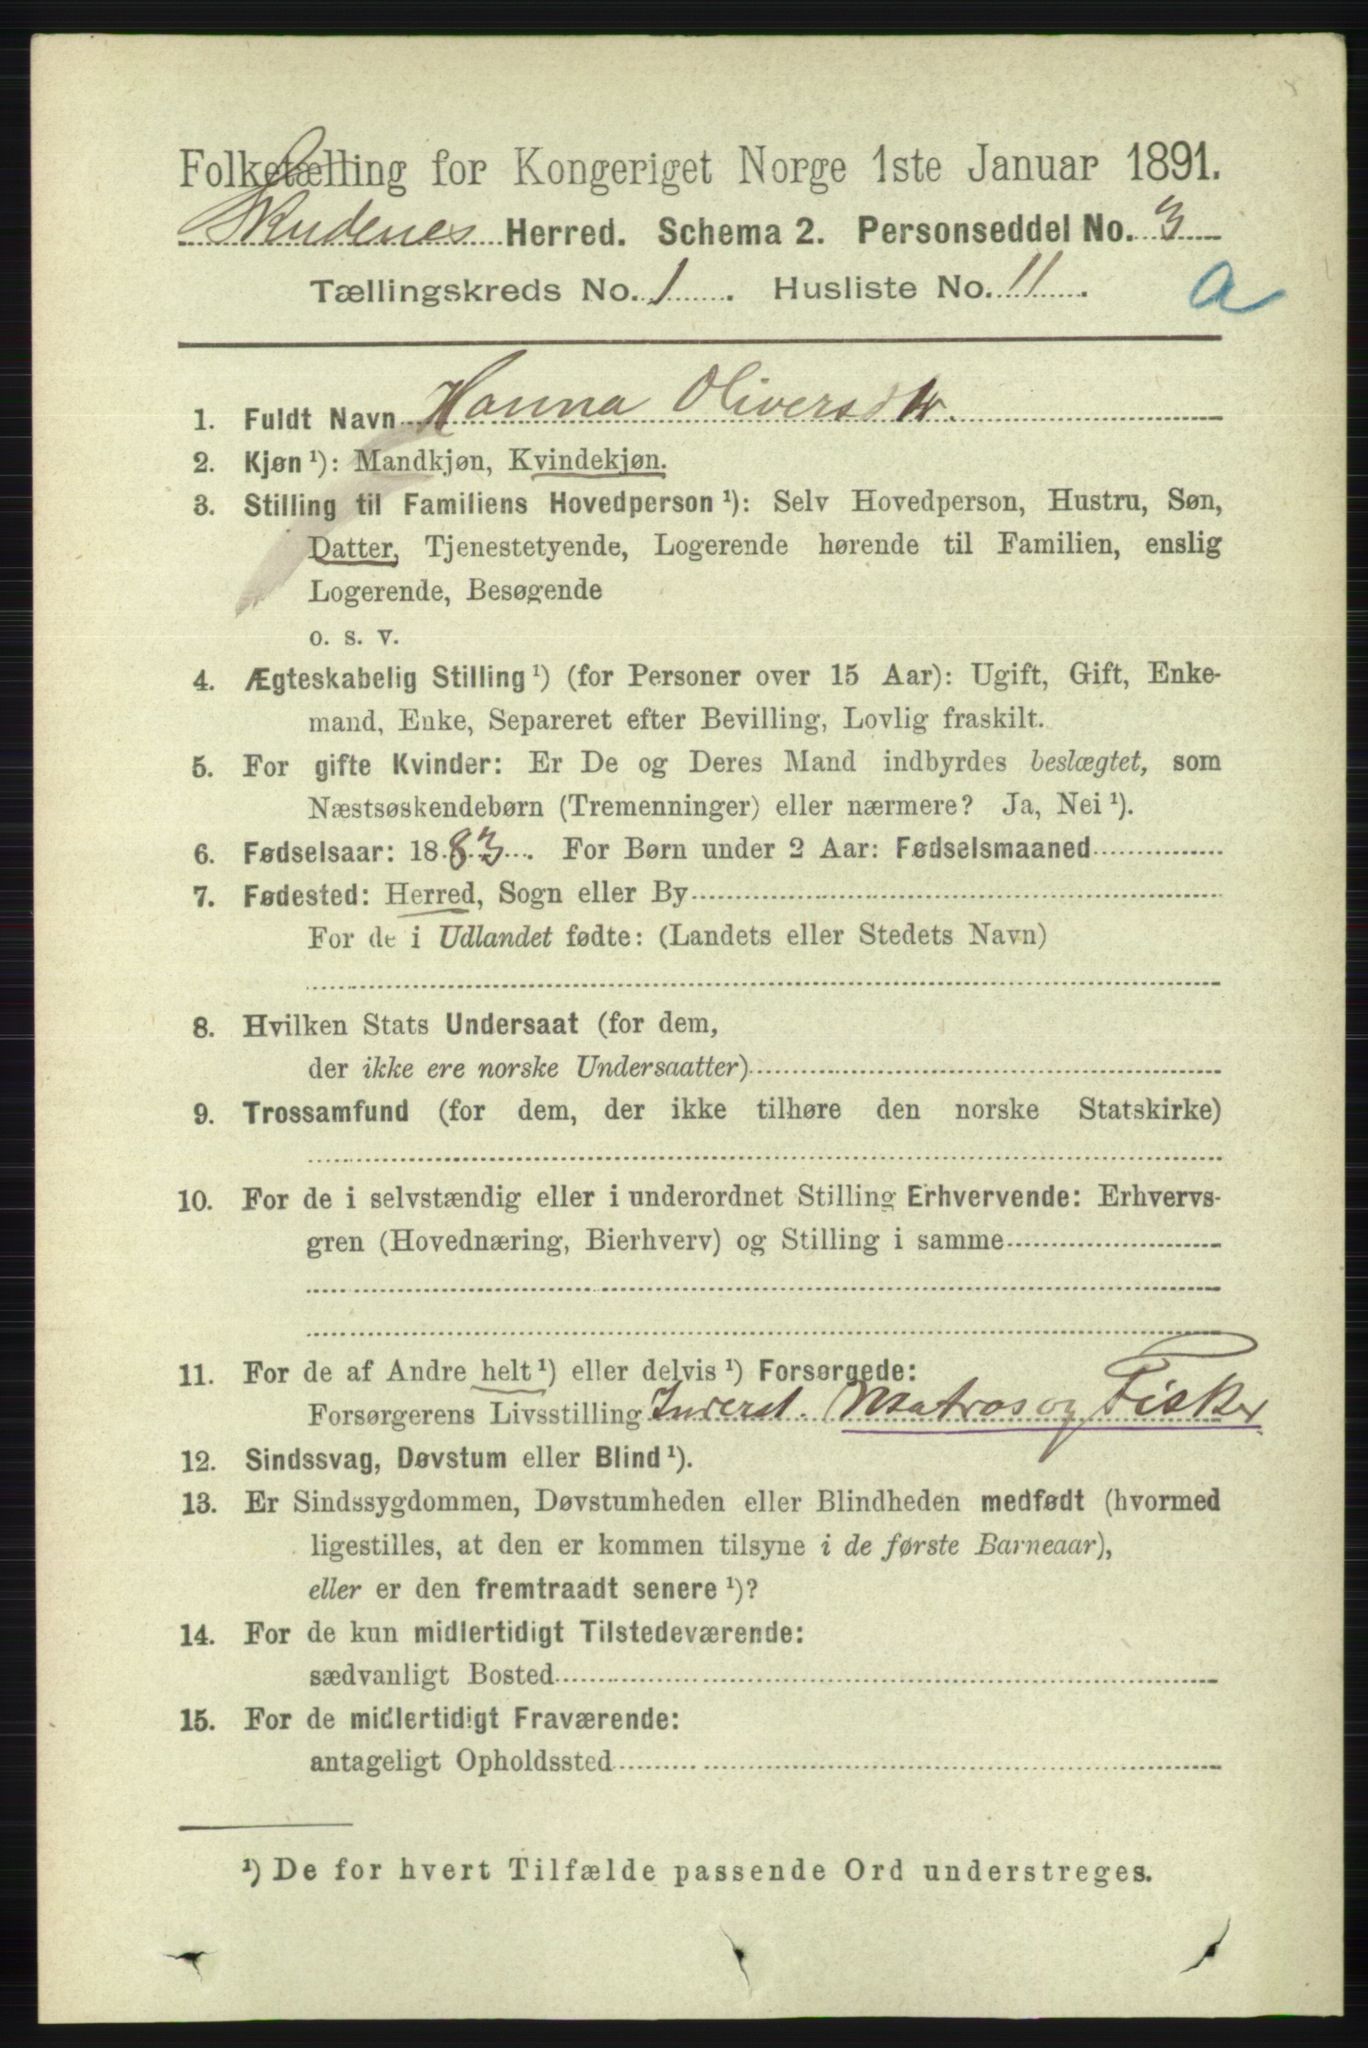 Folketælling for Kongeriget Norge 1ste Januar 1891.
Skudenes Herred. Schema 2. Personseddel No. 3
Tællingskreds No. 1. Husliste No. 11.
a
1. Fuldt Navn Hanna Oliversdtr.
2. Kjøn ¹): Mandkjøn, Kvindekjøn.
3. Stilling til Familiens Hovedperson ¹): Selv Hovedperson, Hustru, Søn,
Datter, Tjenestetyende, Logerende hørende til Familien, enslig
Logerende, Besøgende
o. s. v.
4. Ægteskabelig Stilling ¹) (for Personer over 15 Aar): Ugift, Gift, Enke-
mand, Enke, Separeret efter Bevilling, Lovlig fraskilt.
5. For gifte Kvinder: Er De og Deres Mand indbyrdes beslægtet, som
Næstsøskendebørn (Tremenninger) eller nærmere? Ja, Nei ¹).
6. Fødselsaar: 1883. For Børn under 2 Aar: Fødselsmaaned
7. Fødested: Herred, Sogn eller By
For de i Udlandet fødte: (Landets eller Stedets Navn)
8. Hvilken Stats Undersaat (for dem,
der ikke ere norske Undersaatter)
9. Trossamfund (for dem, der ikke tilhøre den norske Statskirke)
10. For de i selvstændig eller i underordnet Stilling Erhvervende: Erhvervs-
gren (Hovednæring, Bierhverv) og Stilling i samme
11. For de af Andre helt ¹) eller delvis ¹) Forsørgede:
Forsørgerens Livsstilling Inderst. Matros og Fisker
12. Sindssvag, Døvstum eller Blind ¹).
13. Er Sindssygdommen, Døvstumheden eller Blindheden medfødt (hvormed
ligestilles, at den er kommen tilsyne i de første Barneaar),
eller er den fremtraadt senere ¹)?
14. For de kun midlertidigt Tilstedeværende:
sædvanligt Bosted
15. For de midlertidigt Fraværende:
antageligt Opholdssted
¹) De for hvert Tilfælde passende Ord understreges.